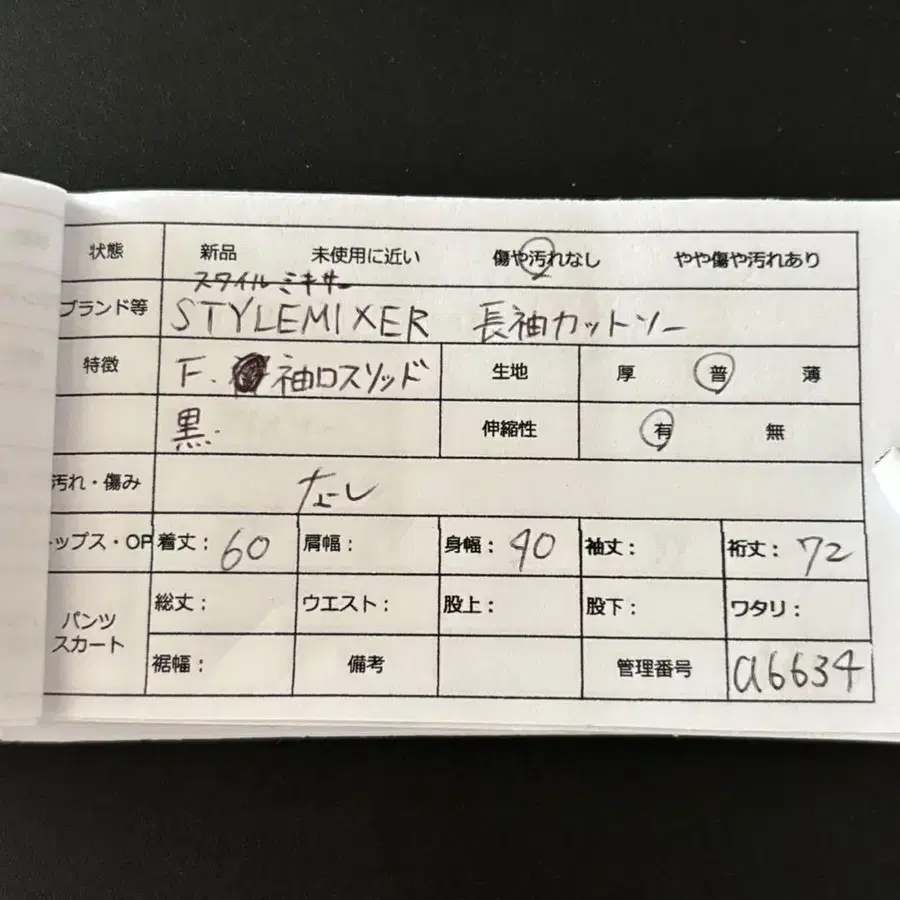 状態 新品 未使用に近い 傷や汚れなし やや傷や汚れあり
スタイルミキサー
ブランド等 STYLEMIXER 長袖カットソー
特徴 F. 袖口スリッド 生地 厚 普 薄
黒. 伸縮性 有 無
汚れ・傷み なし
トップス・OP 着丈: 60 肩幅: 身幅: 40 袖丈: 裄丈: 72
パンツ スカート 総丈: ウエスト: 股上: 股下: ワタリ:
裾幅: 備考 管理番号 a6634